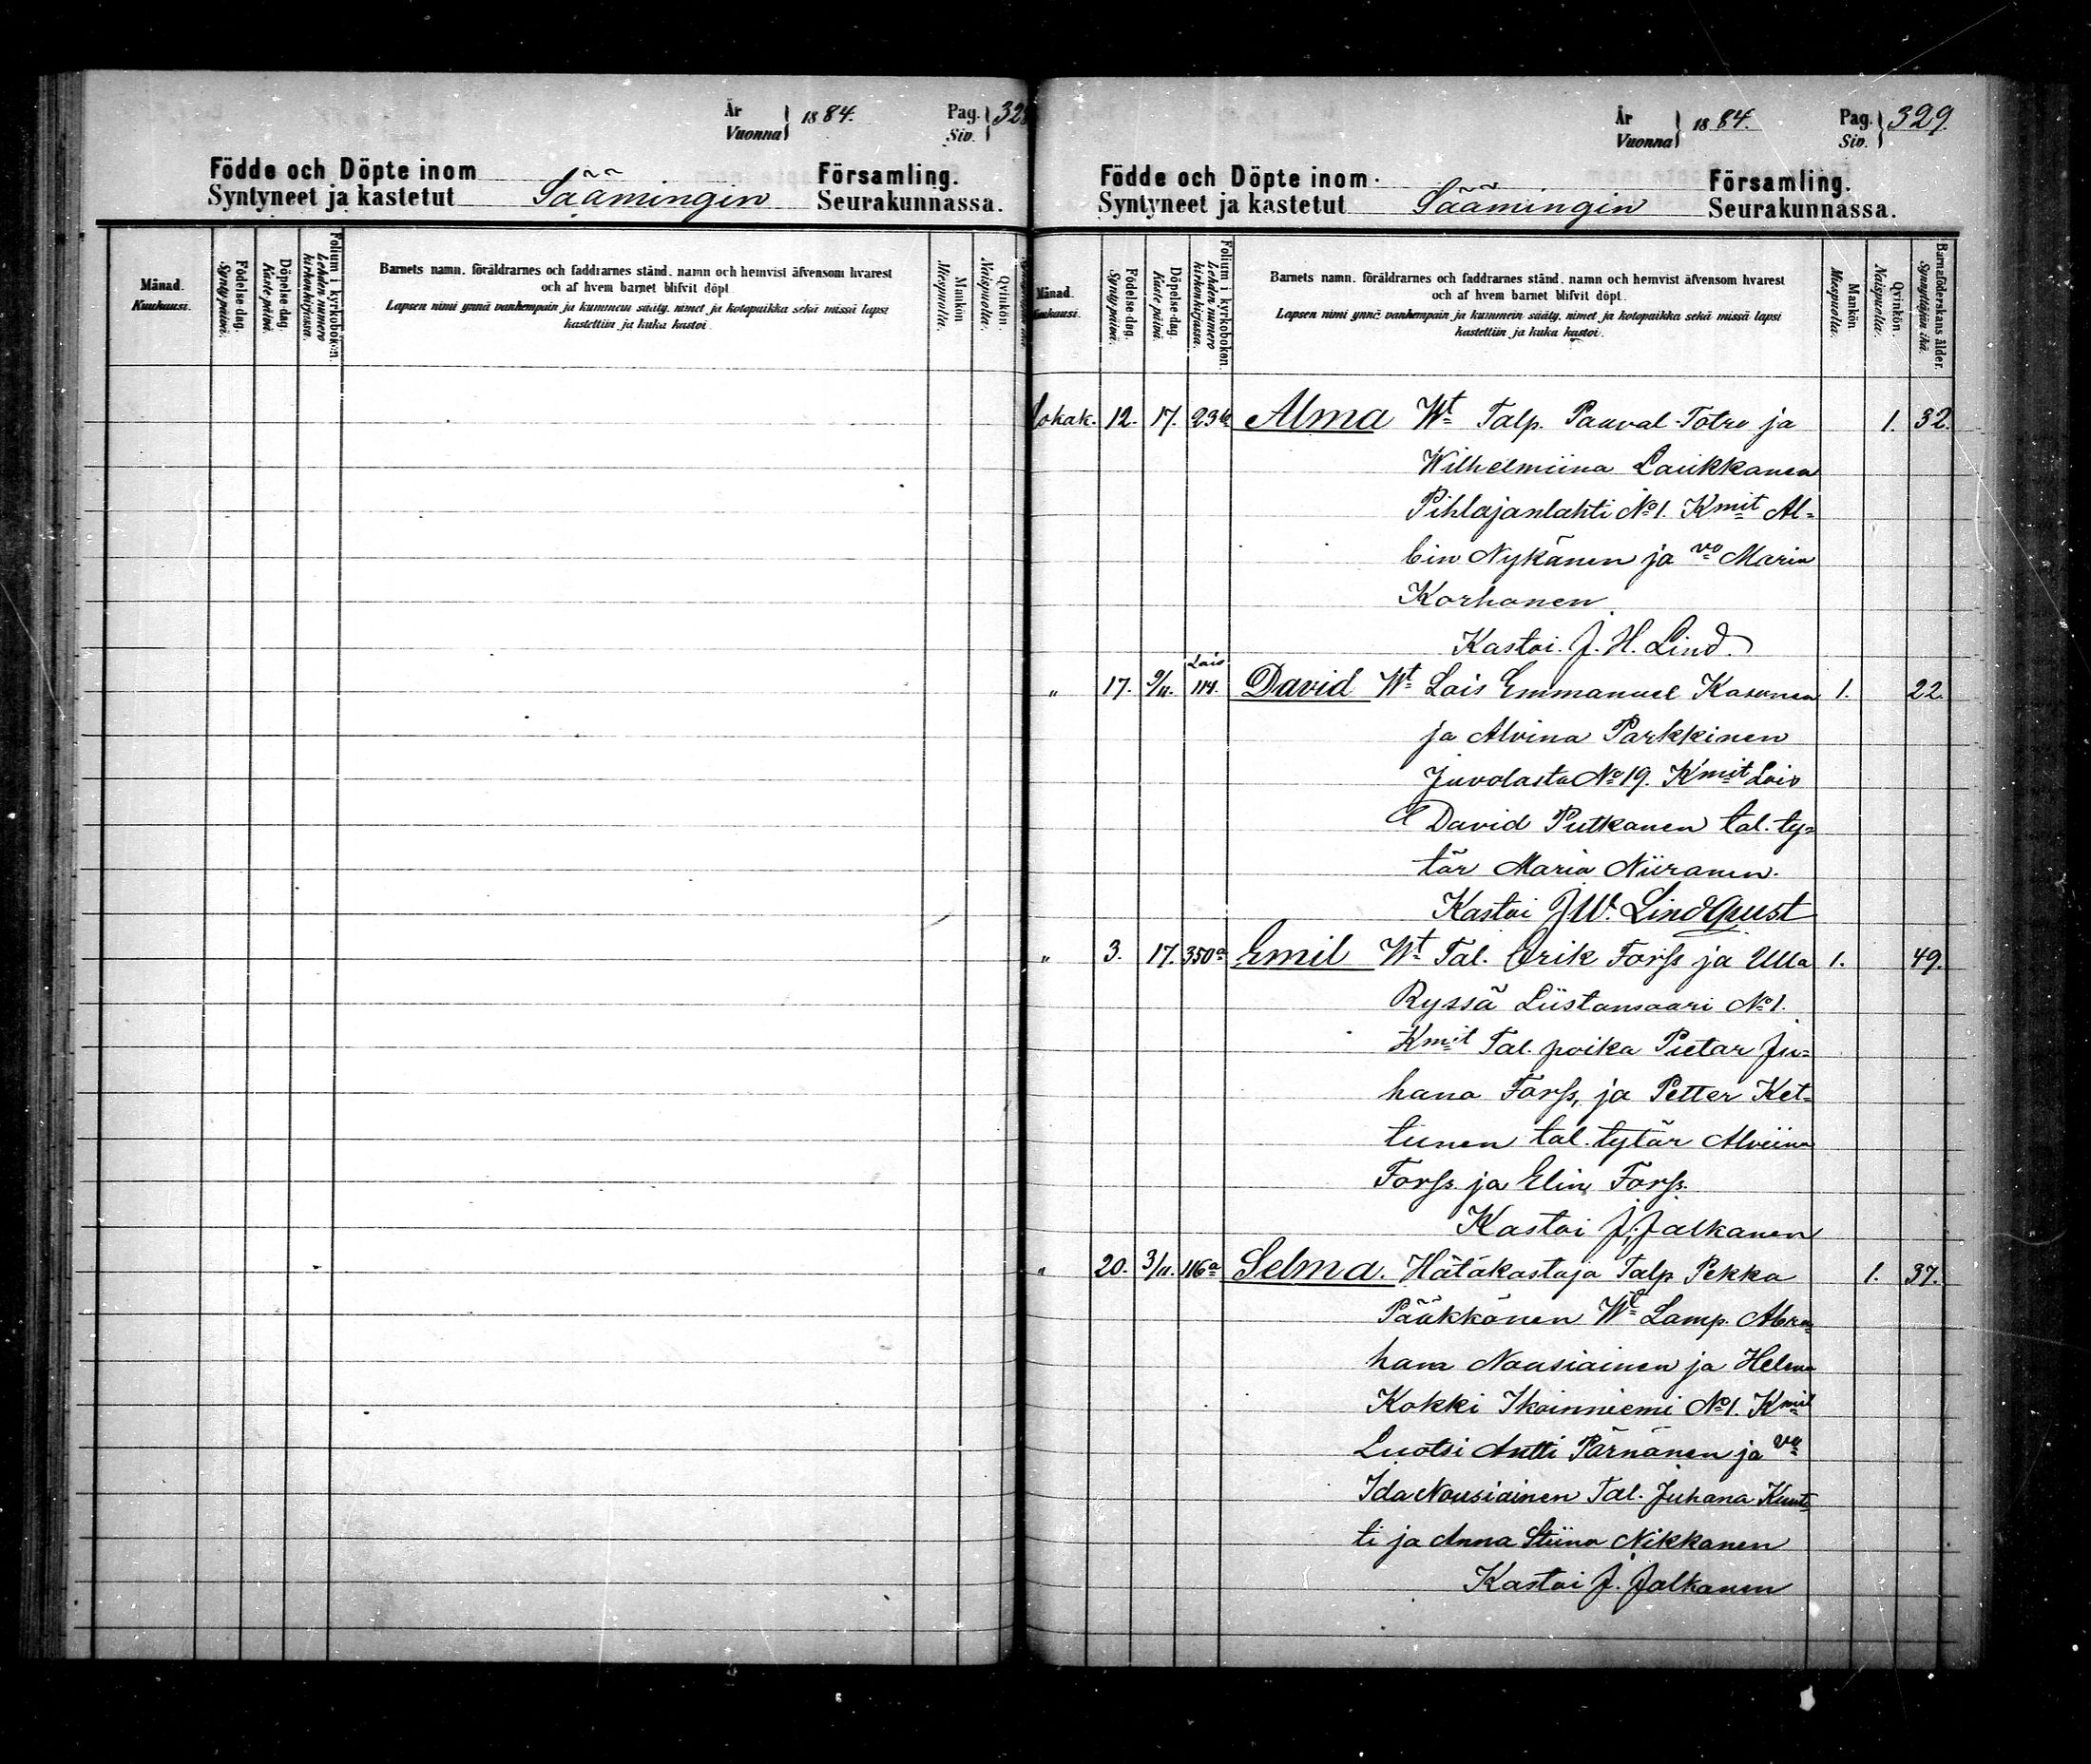 År
Vuonna } 1884. Pag.
Siv. } 328
Födde och Döpte inom
Syntyneet ja kastetut Säämingin Församling.
Seurakunnassa.
Månad.
Kuukausi.
Födelse-dag.
Syntypäivä.
Döpelse-dag.
Kaste päivä.
Folium i kyrkoboken.
Lehden numero kirkonkirjassa.
Barnets namn, föräldrarnes och faddrarnes stånd, namn och hemvist äfvensom hvarest
och af hvem barnet blifvit döpt.
Lapsen nimi ynnä vanhempain ja kummein sääty, nimet ja kotopaikka sekä missä lapsi
kastettiin ja kuka kastoi.
Mankön.
Miespuolia.
Qvinkön.
Naispuolia.
År
Vuonna } 1884. Pag.
Siv. } 329.
Födde och Döpte inom
Syntyneet ja kastetut Säämingin Församling.
Seurakunnassa.
Månad.
Kuukausi.
Födelse-dag.
Syntypäivä.
Döpelse-dag.
Kaste päivä.
Folium i kyrkoboken.
Lehden numero kirkonkirjassa.
Barnets namn, föräldrarnes och faddrarnes stånd, namn och hemvist äfvensom hvarest
och af hvem barnet blifvit döpt.
Lapsen nimi ynnä vanhempain ja kummein sääty, nimet ja kotopaikka sekä missä lapsi
kastettiin ja kuka kastoi.
Mankön.
Miespuolia.
Qvinkön.
Naispuolia.
Barnaföderskans ålder.
Synnyttäjän ikä.
Lokak. 12. 17. Alma Wt Talp. Paaval Totro ja 1. 32.
Wilhelmiina Laukkanen
Pihlajanlahti No 1. Kmit Al=
bin Nykänen ja vo Maria
Korhonen
Kastoi. J. H. Lind.
" 17. 9/11. Lois 114. David Wt Lois Emmanuel Kasonen 1. 22.
ja Alvina Parkkinen
Juvolasta No 19. Kmit Lois
David Putkonen tal. ty=
tär Maria Niiranen.
Kastoi J W. Lindqvist
" 3. 17. 350a Emil Wt Tal. Erik Forss ja Ulla 1. 49.
Ryssä Liistonsaari No 1.
Kmit Tal. poika Pietar Ju=
hana Forss, ja Petter Ket=
tunen tal. tytär Alviina
Forss. ja Elin Forss.
Kastoi J. Jalkanen
" 20. 3/11. 116a Selma. Hätäkastaja Talp Pekka 1. 37.
Pääkkönen Wt Lamp. Abra=
ham Nousiainen ja Helena
Kokki Ikoinniemi No 1. Kmit
Luotsi Antti Pärnänen ja vo
Ida Nousiainen Tal. Juhana
ti ja Anna Stiina Nikkanen
Kastoi J. Jalkanen